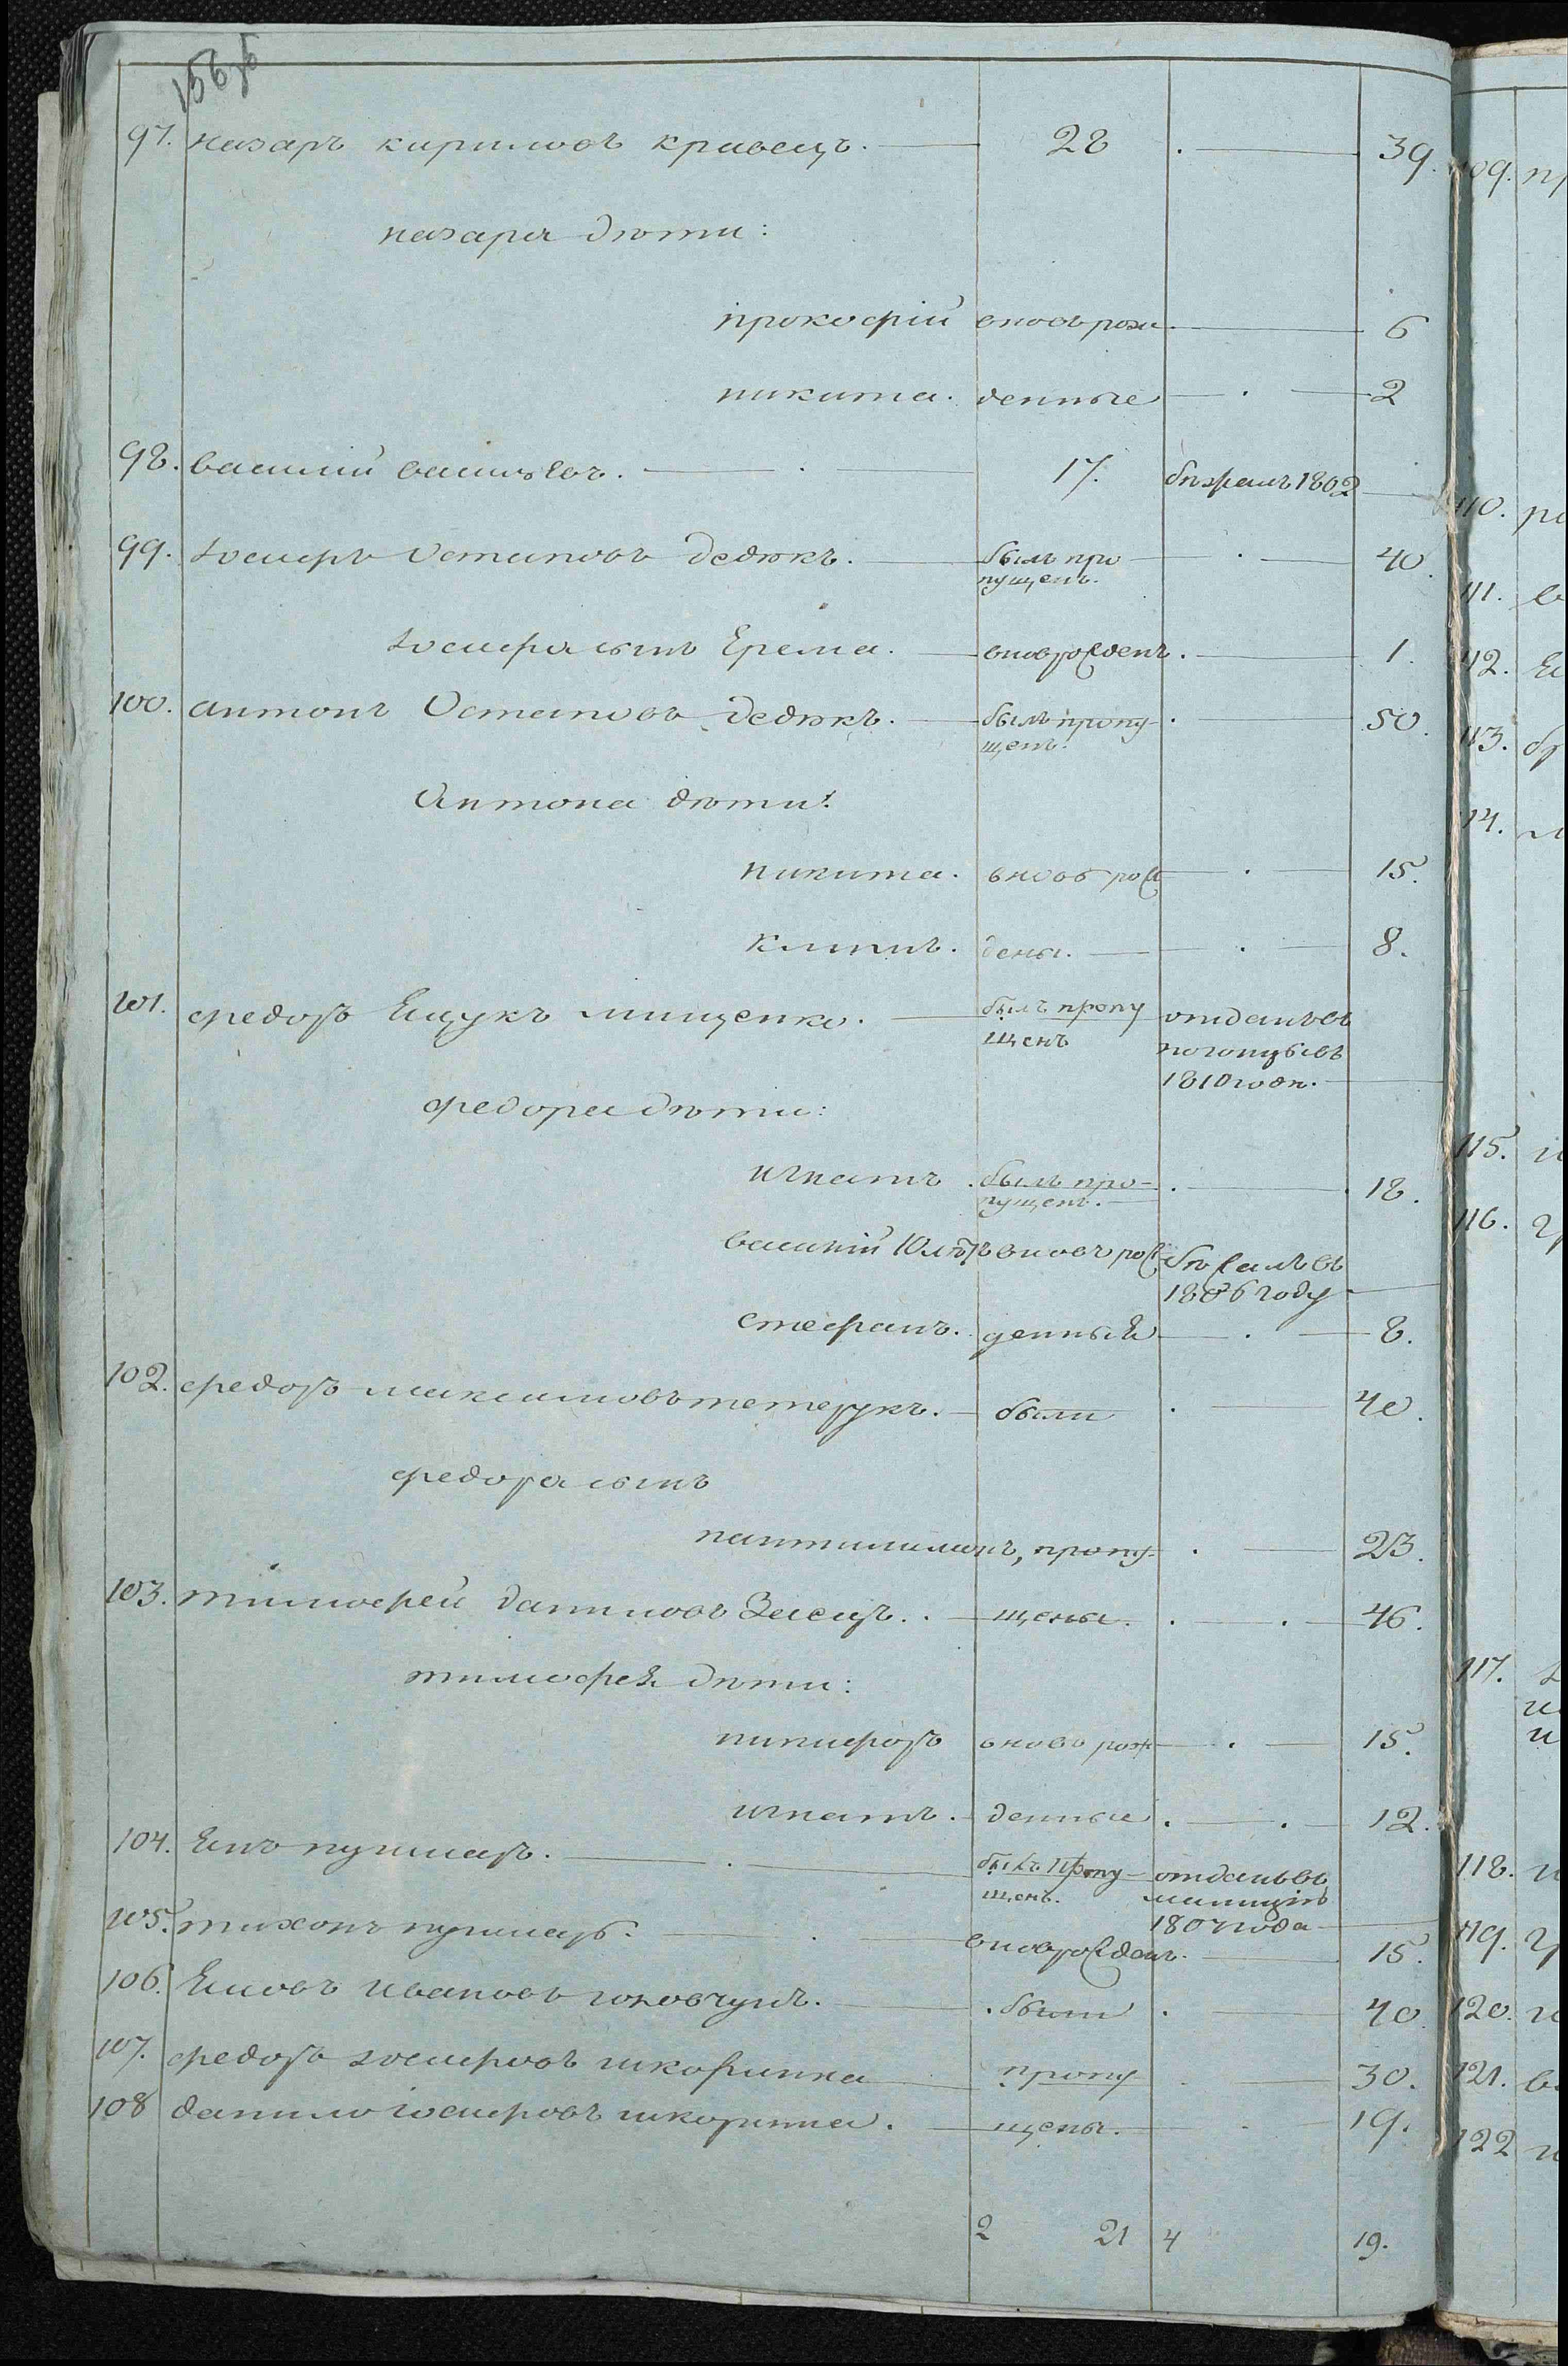 97. назаръ кириловъ кравецъ. 28 39.
назара дѣти:
прокофій вновь рож 6
никита. денные 2
98. василій васильевъ. 17. бѣжалъ 1802
99. Іосифъ Остаповъ дедюкъ. былъ про 40.
пущенъ.
Іосифа сынъ Ерема. вноврожденъ. 1.
100. антонъ Остаповъ дедюкъ. былъ пропу 50.
щенъ.
Антона дѣти:
никита. вновь рож 15.
климъ. дены. 8.
101. федоръ Ещукъ мищенко. былъ пропу отданъ въ
щенъ погонцы въ
1810 годѣ.
федора дѣти:
игнатъ. былъ про- 18.
пущенъ.
василій 10 лѣтъ вновь рож бѣжалъ въ
1806 году
стефанъ. денныя 8.
102. федоръ максимовъ тетерукъ. были 40.
федора сынъ
пантилимонъ, пропу- 23.
103. тимофей даниловъ Заецъ. щены. 46.
тимофея дѣти:
никифоръ вновь рож 15.
игнатъ. денные 12.
104. пушкаръ. былъ пропу отданъ въ
щенъ. милицію
1807 года
105. тихонъ пушкаръ. вноврожденъ. 15.
106. ивановъ были 40.
107. федоръ Іосифовъ шкорипка пропу 30.
108 данило іосифовъ шкорипка. щены. 19.
2 21 4 19.
109.
110.
111. в
112.
113.
114.
115.
116.
117.
118.
119.
120.
121.
122